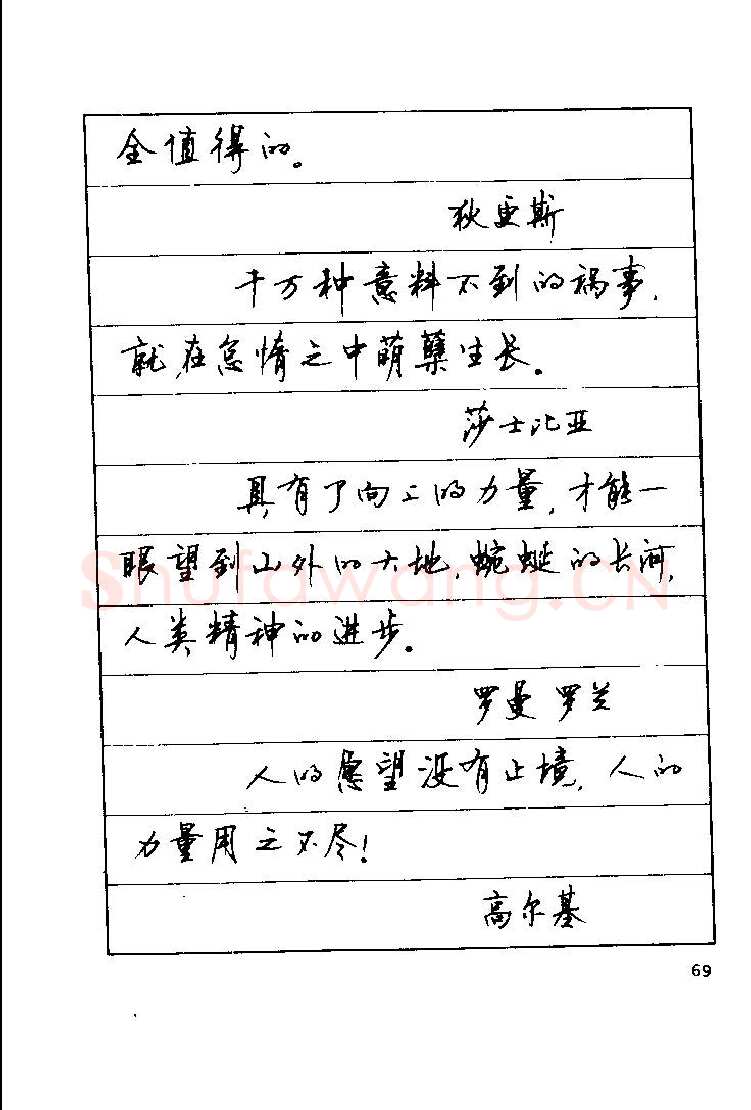 全值得的。
狄更斯
千万种意料不到的祸事，
就在怠惰之中萌孽生长。
莎士比亚
具有了向上的力量，才能一
眼望到山外的大地，蜿蜒的长河，
人类精神的进步。
罗曼罗兰
人的愿望没有止境，人的
力量用之不尽！
高尔基
69
Shufawang.CN